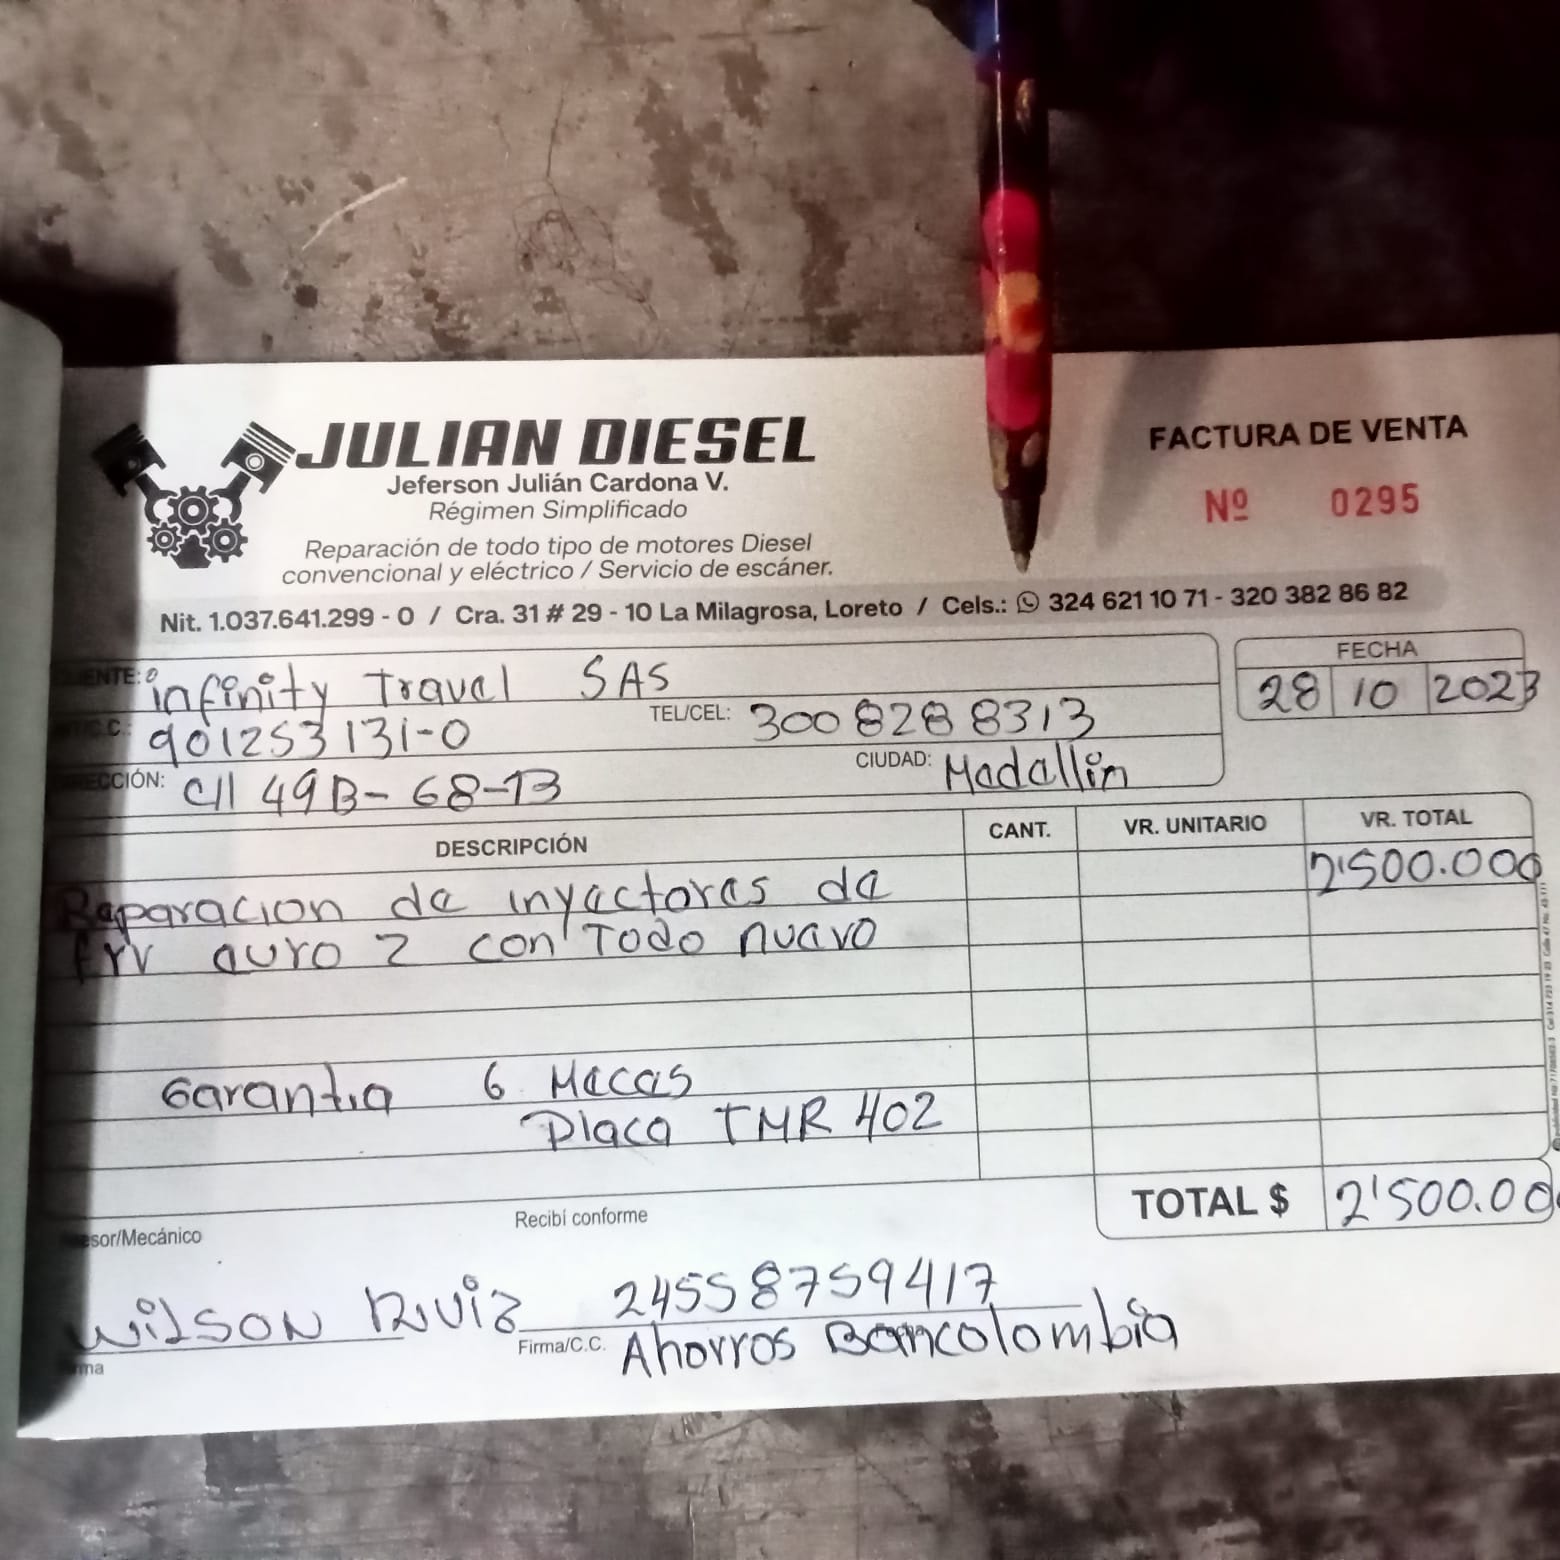 JULIAN DIESEL
Jeferson Julián Cardona V.
Régimen Simplificado
Reparación de todo tipo de motores Diesel
convencional y eléctrico / Servicio de escáner.
FACTURA DE VENTA
Nº 0295
Nit. 1.037.641.299 - 0 / Cra. 31 # 29 - 10 La Milagrosa, Loreto / Cels.: 324 621 10 71 - 320 382 86 82
infinity Travel SAS
FECHA
28 10 2023
901253131-0 TEL/CEL: 300 828 8313
CII 49B- 68-13 CIUDAD: Medellin
DESCRIPCIÓN CANT. VR. UNITARIO VR. TOTAL
Reparacion de inyectores de 2'500.000
frr euro 2 con Todo nuevo
Garantia 6 Meces
Placa TMR 402
TOTAL $ 2'500.00
Recibí conforme
Wilson Ruiz 24558759417
Firma/C.C. Ahorros Bancolombia